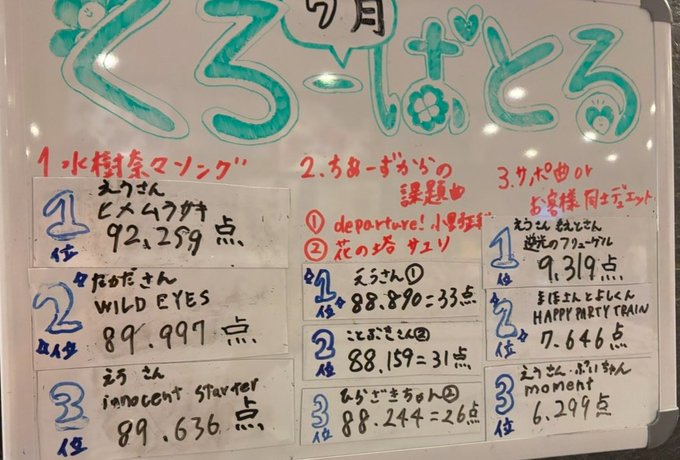 7月
くろーばとる
1 水樹奈々ソング
1位
えうさん
ヒメムラサキ
92,259点
2位
たかださん
WILD EYES
89.997点
3位
えうさん
innocent starter
89.636点
2.ちあーずからの
課題曲
① departure! 小野正利
② 花の塔 サユリ
1位
えうさん①
88.890=33点
2位
ことぶきさん②
88.159=31点
3位
ひらざきちゃん②
88.244=26点
3.サポ曲or
お客様同士デュエット
1位
えうさん
逆光のフリューゲル
9.319点
2位
まほさんとよしくん
HAPPY PARTY TRAIN
7.646点
3位
えうさん・ぷいちゃん
moment
6.299点